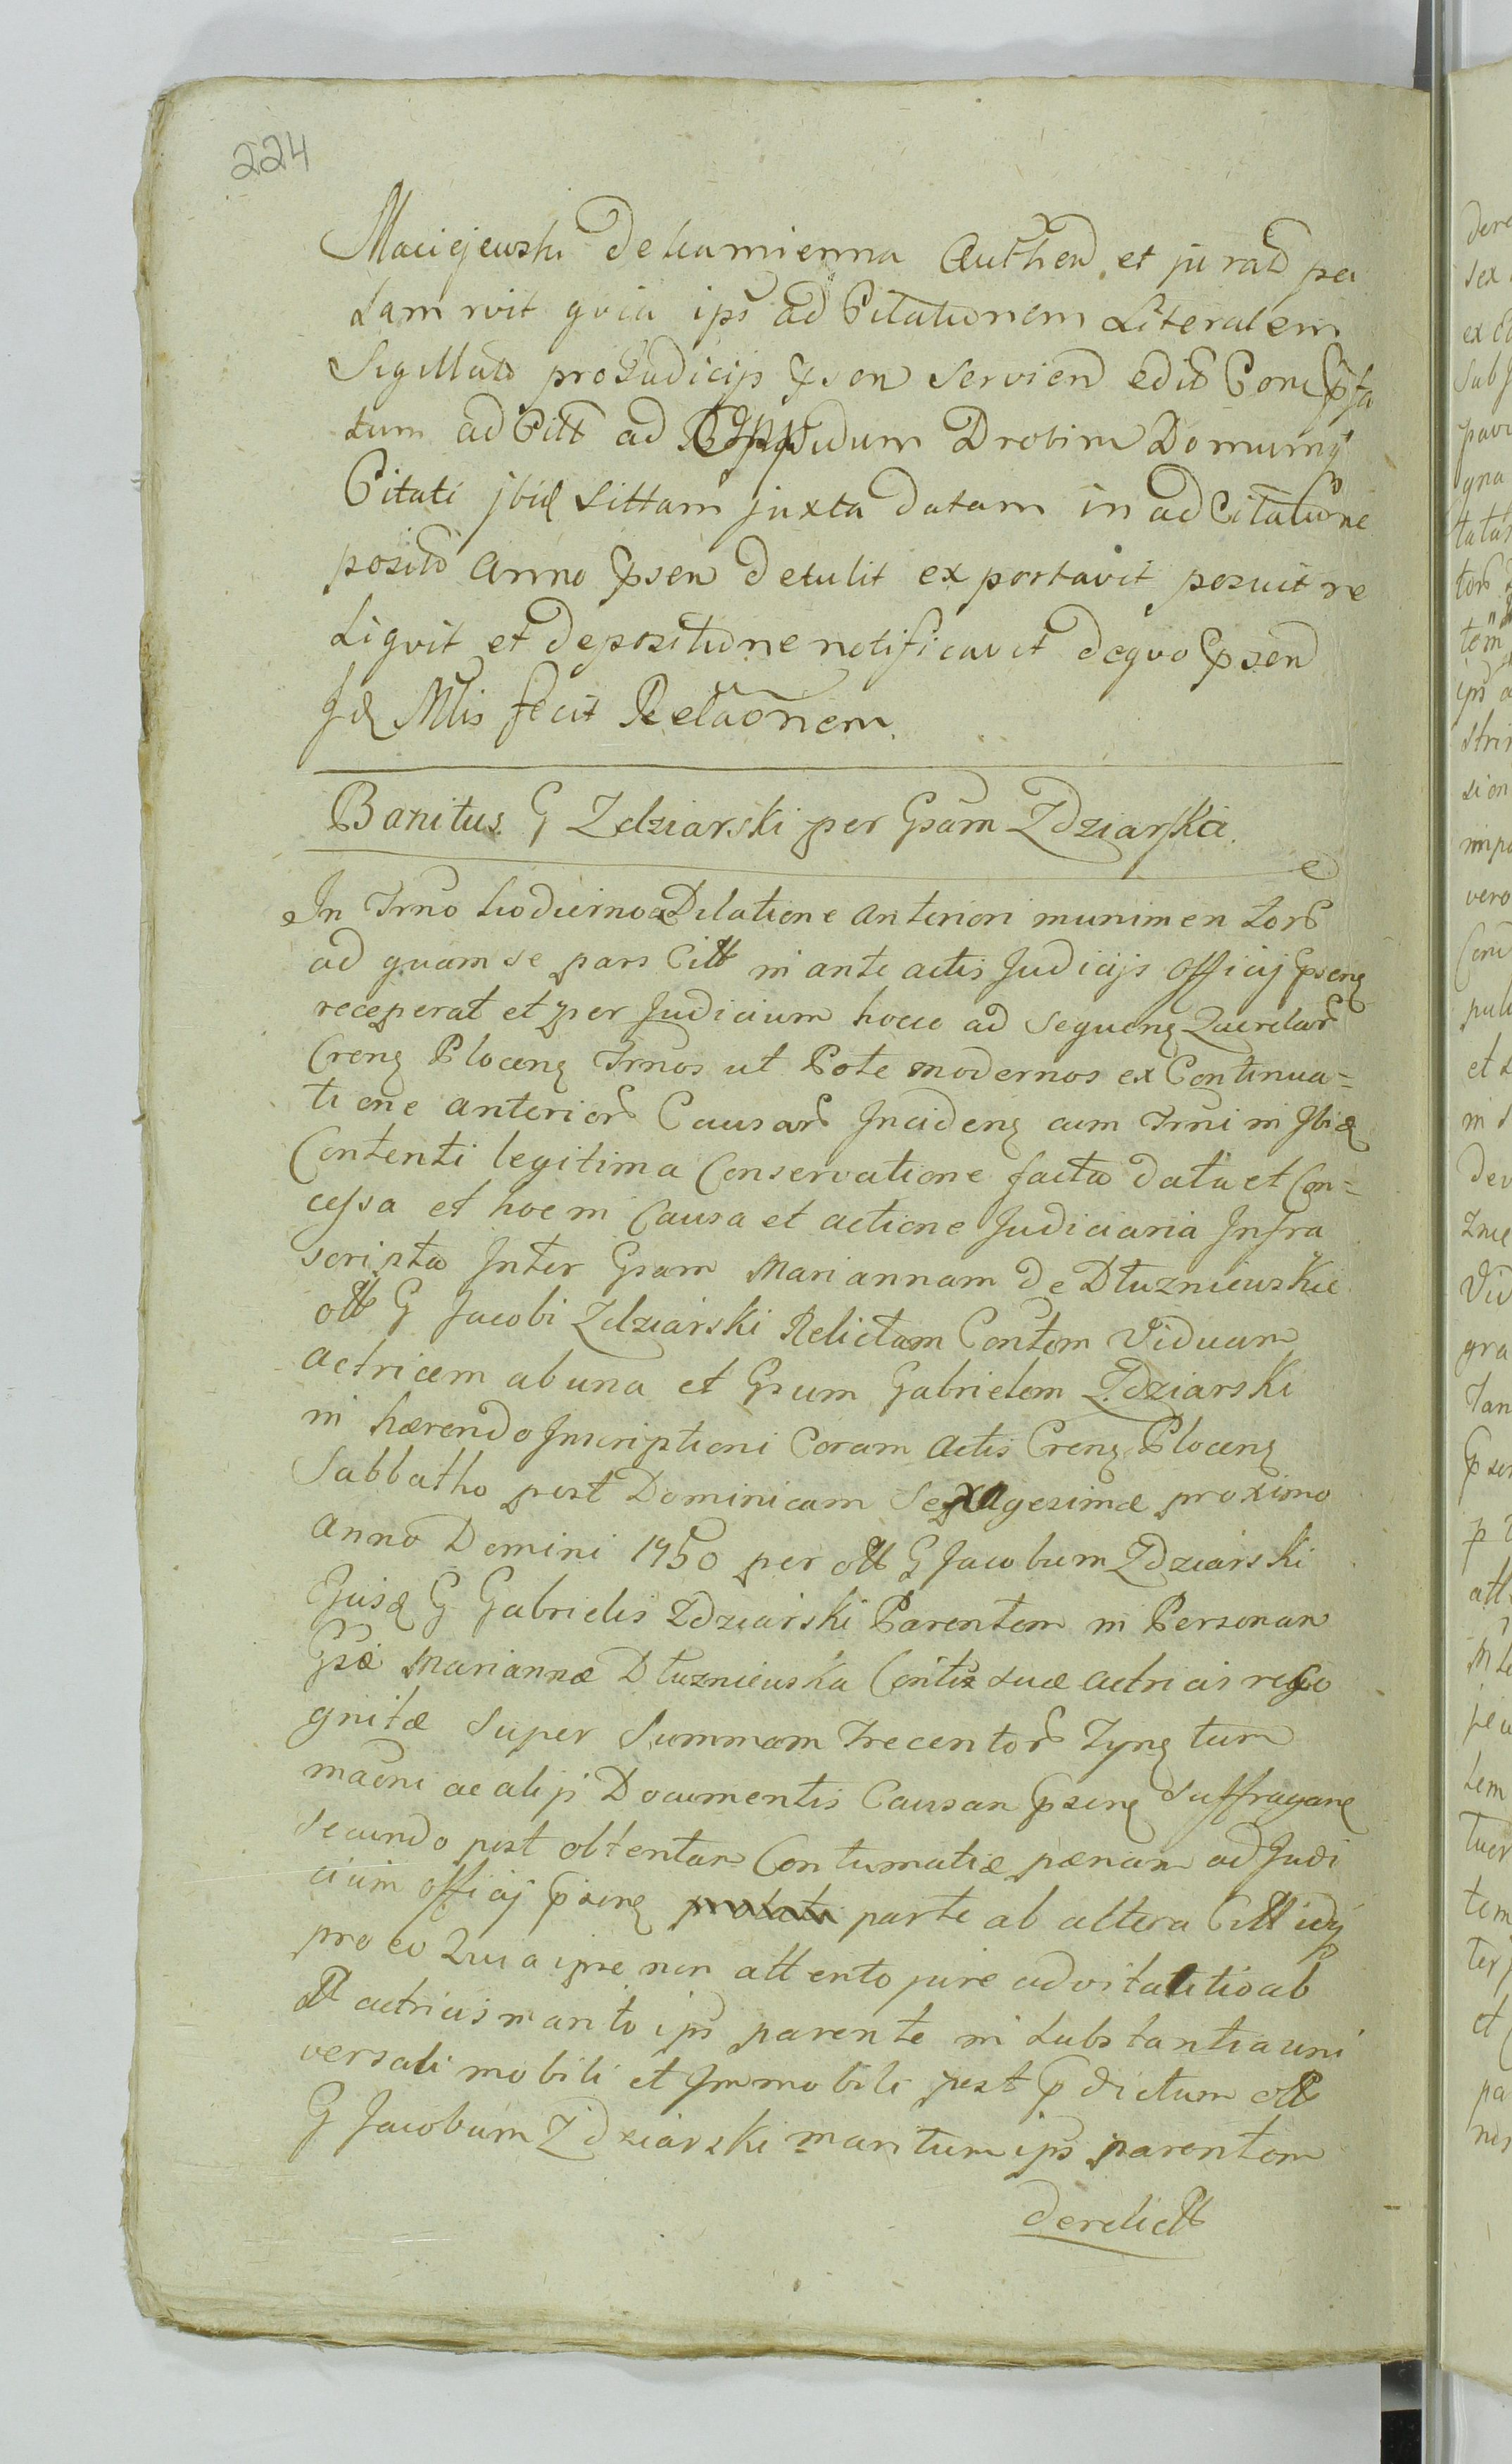 224
Maciejewski de kamienna Authen et jurat pa
lam rvit qvia ips ad Citationem Literalem
Sigillato pro Judicijs psen Servien edit Comp̃ta
tum ad Citt ad Oppidum Drobin Domumq̃
Citati jbid Sittam juxta datam in ad Citatione
posito Anno psen detulit exportavit posuit re
liqvit et depositione notificavit deqvo psen
Jd Mlis fecit Relãonem.
Banitus G Zdziarski per Gsam Zdziarska.
In Trno hodierno a Dilatione anteriori munimentor
ad quam se pars Citt in ante actis Judicijs Officij psenę
receperat et per Judicium hocce ad sequenę Querelar
Crenę Plocenę Trnos ut Pote modernos ex Continua=
tione anterior Causar Jncidenę cum Trni in Jbid
Contenti legitima Conservatione facta data et Con=
cessa et hoc in Causa et actione Judiciaria Jnfra
scripta Jnter Gsam Mariannam de Dłuzniewskie
olt G Jacobi Zdziarski Relictam Contem Viduam
actricem ab una et Gsum Gabrielem Zdziarski
in hærendo Jnscriptioni Coram Actis Crenę Plocenę
Sabbatho post Dominicam Sexagesimæ proximo
Anno Domini 1750 per olt G Jacobum Zdziarski
Ejusd G Gabrielis Zdziarski Parentem in Personam
Gsæ Mariannæ Dłuzniewska Contis suæ actricis reco
gnitæ Super Summam Trecentor Tynę tum
maõni ac alijs Documentis Causan psenę Suffraganę
Secundo post obtentam Contumatiæ pænam ad Judi
cium Officij psenę parte ab altera Citt idq̃
pro eo Quia ipse non attento jure advitalitio ab
olt actricis marito ips parente in Substantia uni
versali mobili et Jmmobili post p̃dictum olt
G Jacobum Zdziarski maritum ips parentem
derelict